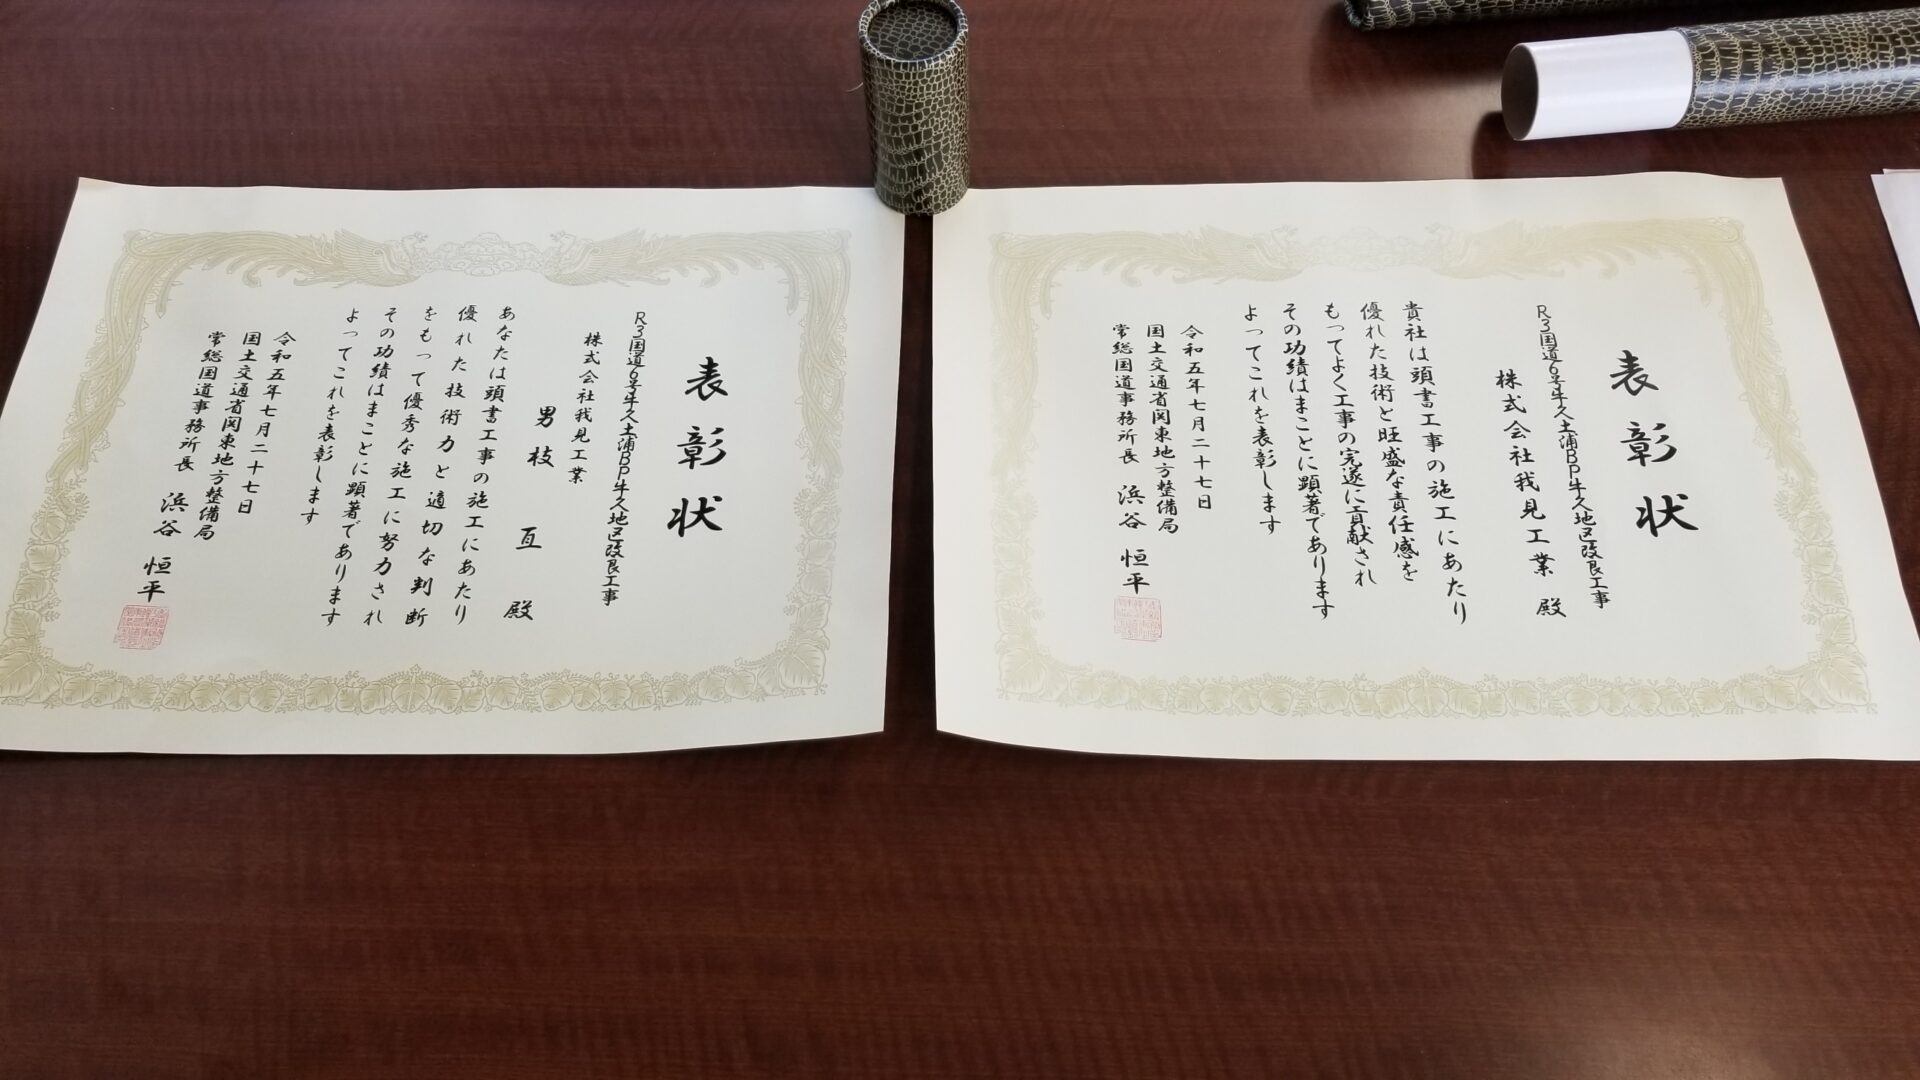 表彰状
R3国道6号牛久土浦BP牛久地区改良工事
株式会社我見工業 殿
貴社は頭書工事の施工にあたり
優れた技術と旺盛な責任感を
もってよく工事の完遂に貢献され
その功績はまことに顕著であります
よってこれを表彰します
令和五年七月二十七日
国土交通省関東地方整備局
常総国道事務所長 浜谷 恒平
表彰状
R3国道6号牛久土浦BP牛久地区改良工事
株式会社我見工業
男枝 亘 殿
あなたは頭書工事の施工にあたり
優れた技術力と適切な判断
をもって優秀な施工に努力され
その功績はまことに顕著であります
よってこれを表彰します
令和五年七月二十七日
国土交通省関東地方整備局
常総国道事務所長 浜谷 恒平